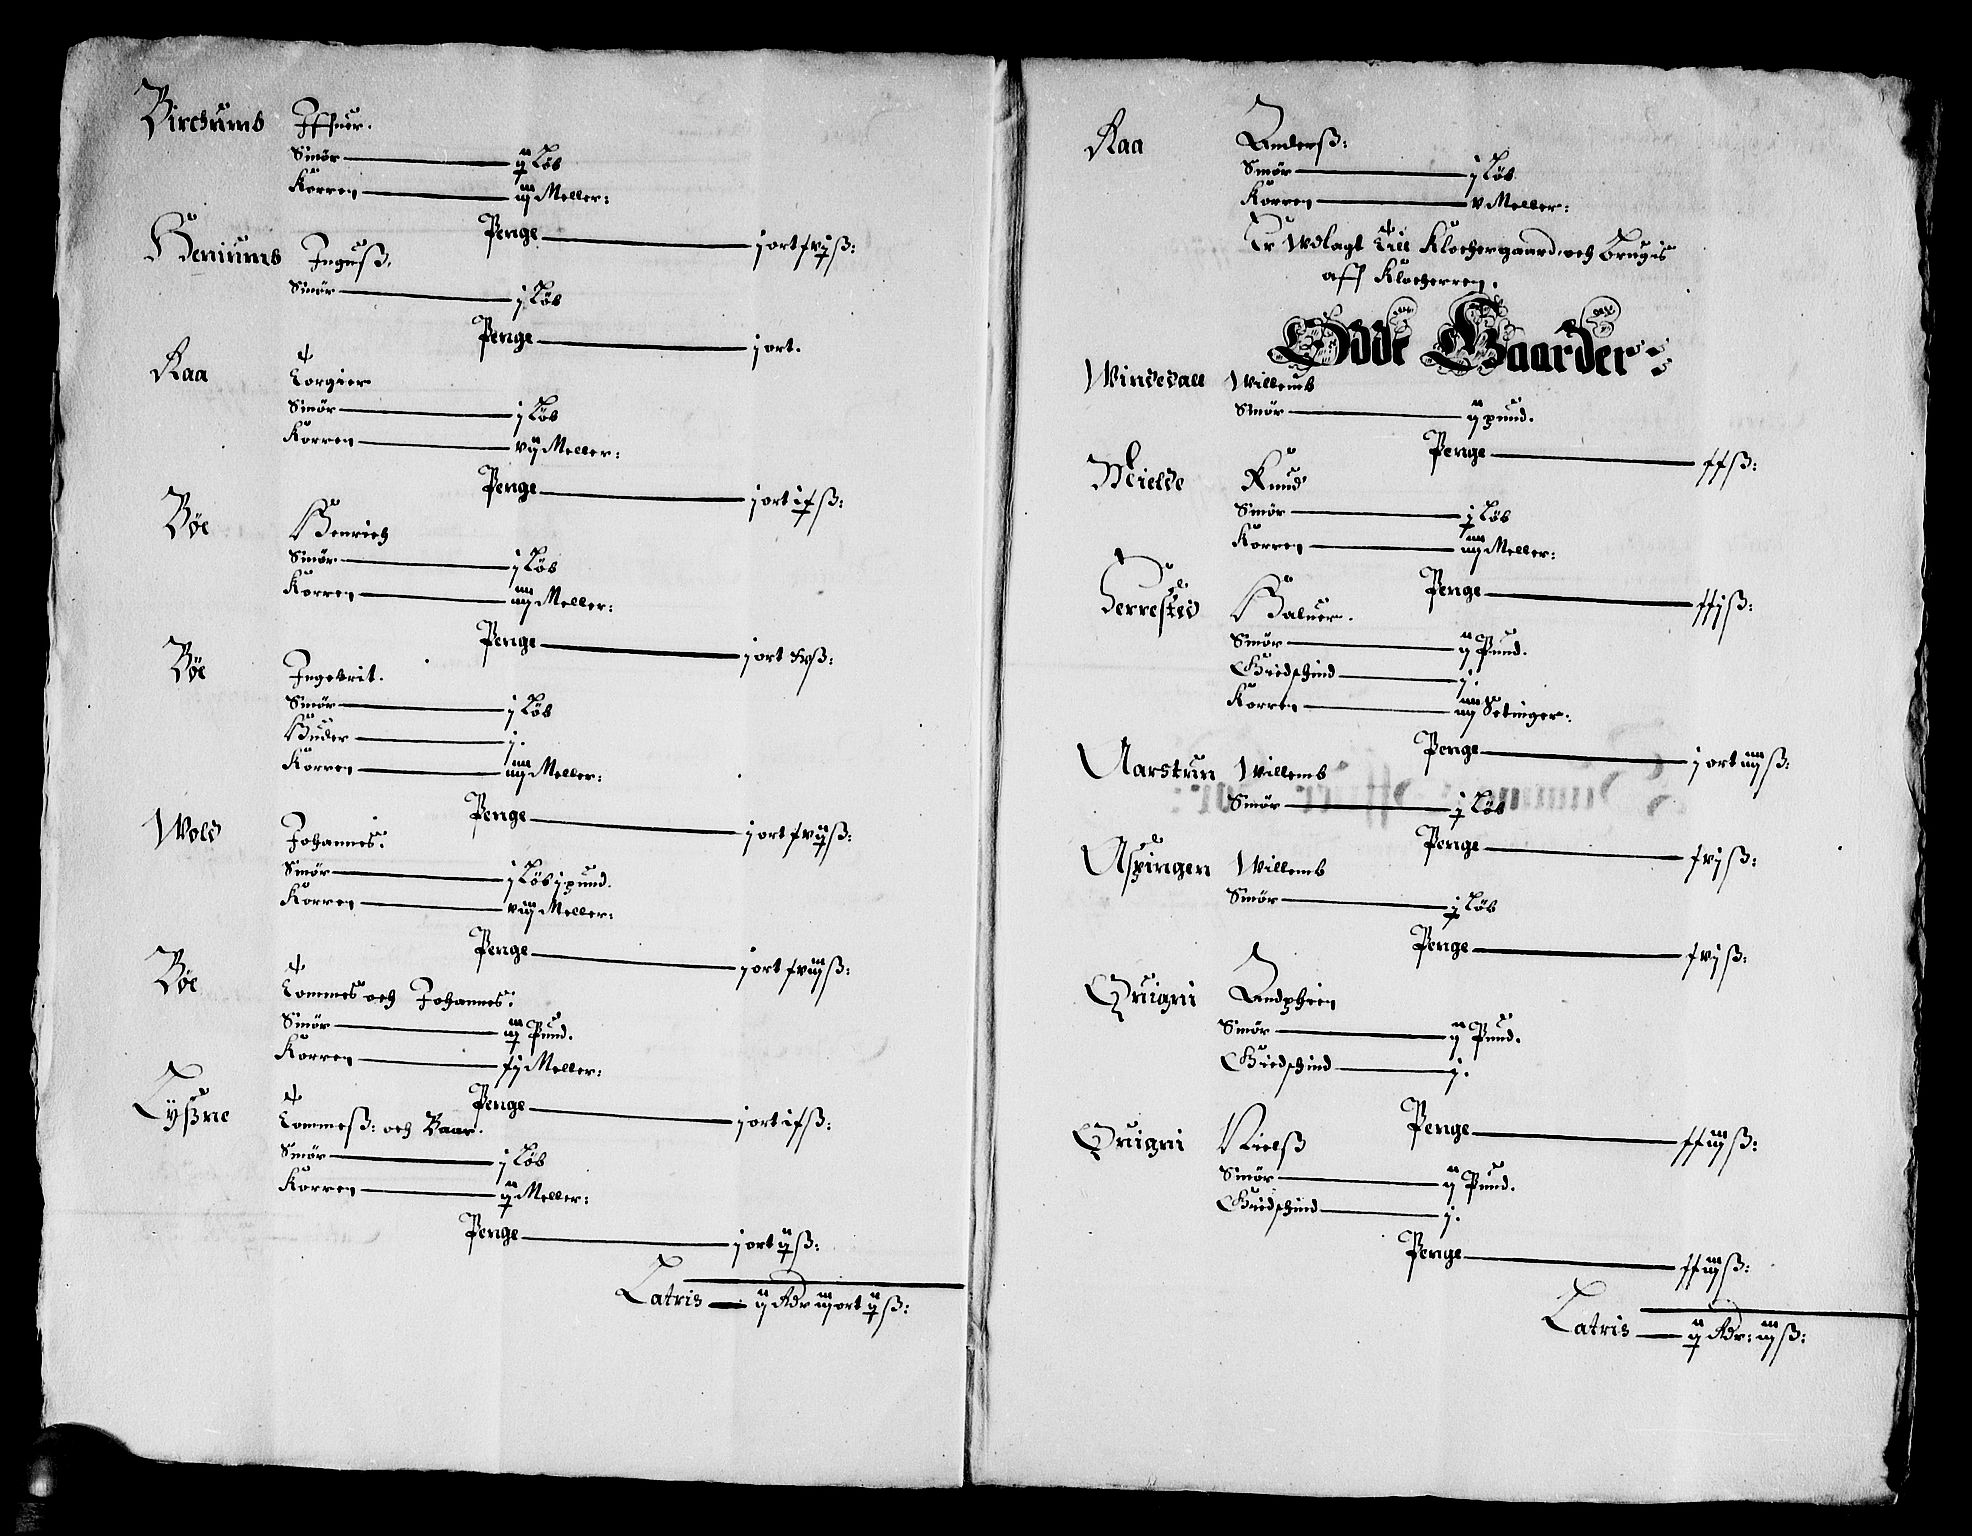 Birchums Iffuer.
Smör — ij Löb
Korren — iij Meller:
Penge — j ort xvj ß:
Heniums Inguß.
Smör — j Löb
Penge — j ort.
Raa Torgier
Smör — j Löb
Korren — vij Meller:
Penge — j ort ix ß:
Böe Henrich
Smör — j Löb
Korren — iiij Meller:
Penge — j ort xv ß:
Böe Ingebrit.
Smör — j Löb
Huder — j.
Korren — iiij Meller:
Penge — j ort xvij ß:
Wold Johannes:
Smör — j Löb j pund.
Korren — viij Meller:
Penge — j ort xviij ß:
Böe Tommes och Johannes:
Smör — iij Pund.
Korren — xj Meller:
Penge — j ort ix ß:
Lyßne Tommeß: och Baar.
Smör — j Löb
Korren — ij Meller:
Penge — j ort ij ß:
Latris — ij Rdr iij ort ij ß:
Raa Anderß:
Smör — j Löb
Korren — v Meller:
Er Udlagt till Klochergaard, och Brugis
aff Klocherren.
Ödde Gaarder:
Windedall Willemb
Smör — ij pund.
Penge — xx ß:
Mielde Knud
Smör — j Löb
Korren — iiij Meller:
Penge — xxj ß:
Herrestid Haluer.
Smör — ij Pund.
Giedschind — j.
Korren — iiij Setinger:
Penge — j ort iiij ß:
Aarstrun Willemb
Smör — j Löb
Penge — xvj ß:
Aspingen Willemb
Smör — j Löb
Penge — xvj ß:
Quigni
Smör — ij Pund.
Giedschind — j.
Penge — xxiij ß:
Quigni Nielß
Smör — ij Pund.
Giedschind — j.
Penge — xxiij ß:
Latris — ij Rdr: iiij ß: